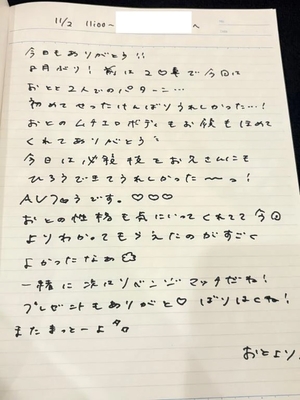 11/2 11:00〜 へ
今日もありがとう!!
8月ぶり！前は2○車で今回は
おとと2人でのパターン…
初めてせったけんばりうれしかった…！
おとのムチエロボディもお顔もほめて
くれてありがとう
今日は必殺技をお兄さんにも
ひろうできてうれしかった〜っ！
AV です。♡♡♡
おとの性格も気にいってくれてて今回
よりわかってもらえたのがすごく
よかったなぁ
一緒に次はリベンジマッチだね！
プレゼントもありがと♡ ばりはくね！
またまっとーよ
おとより